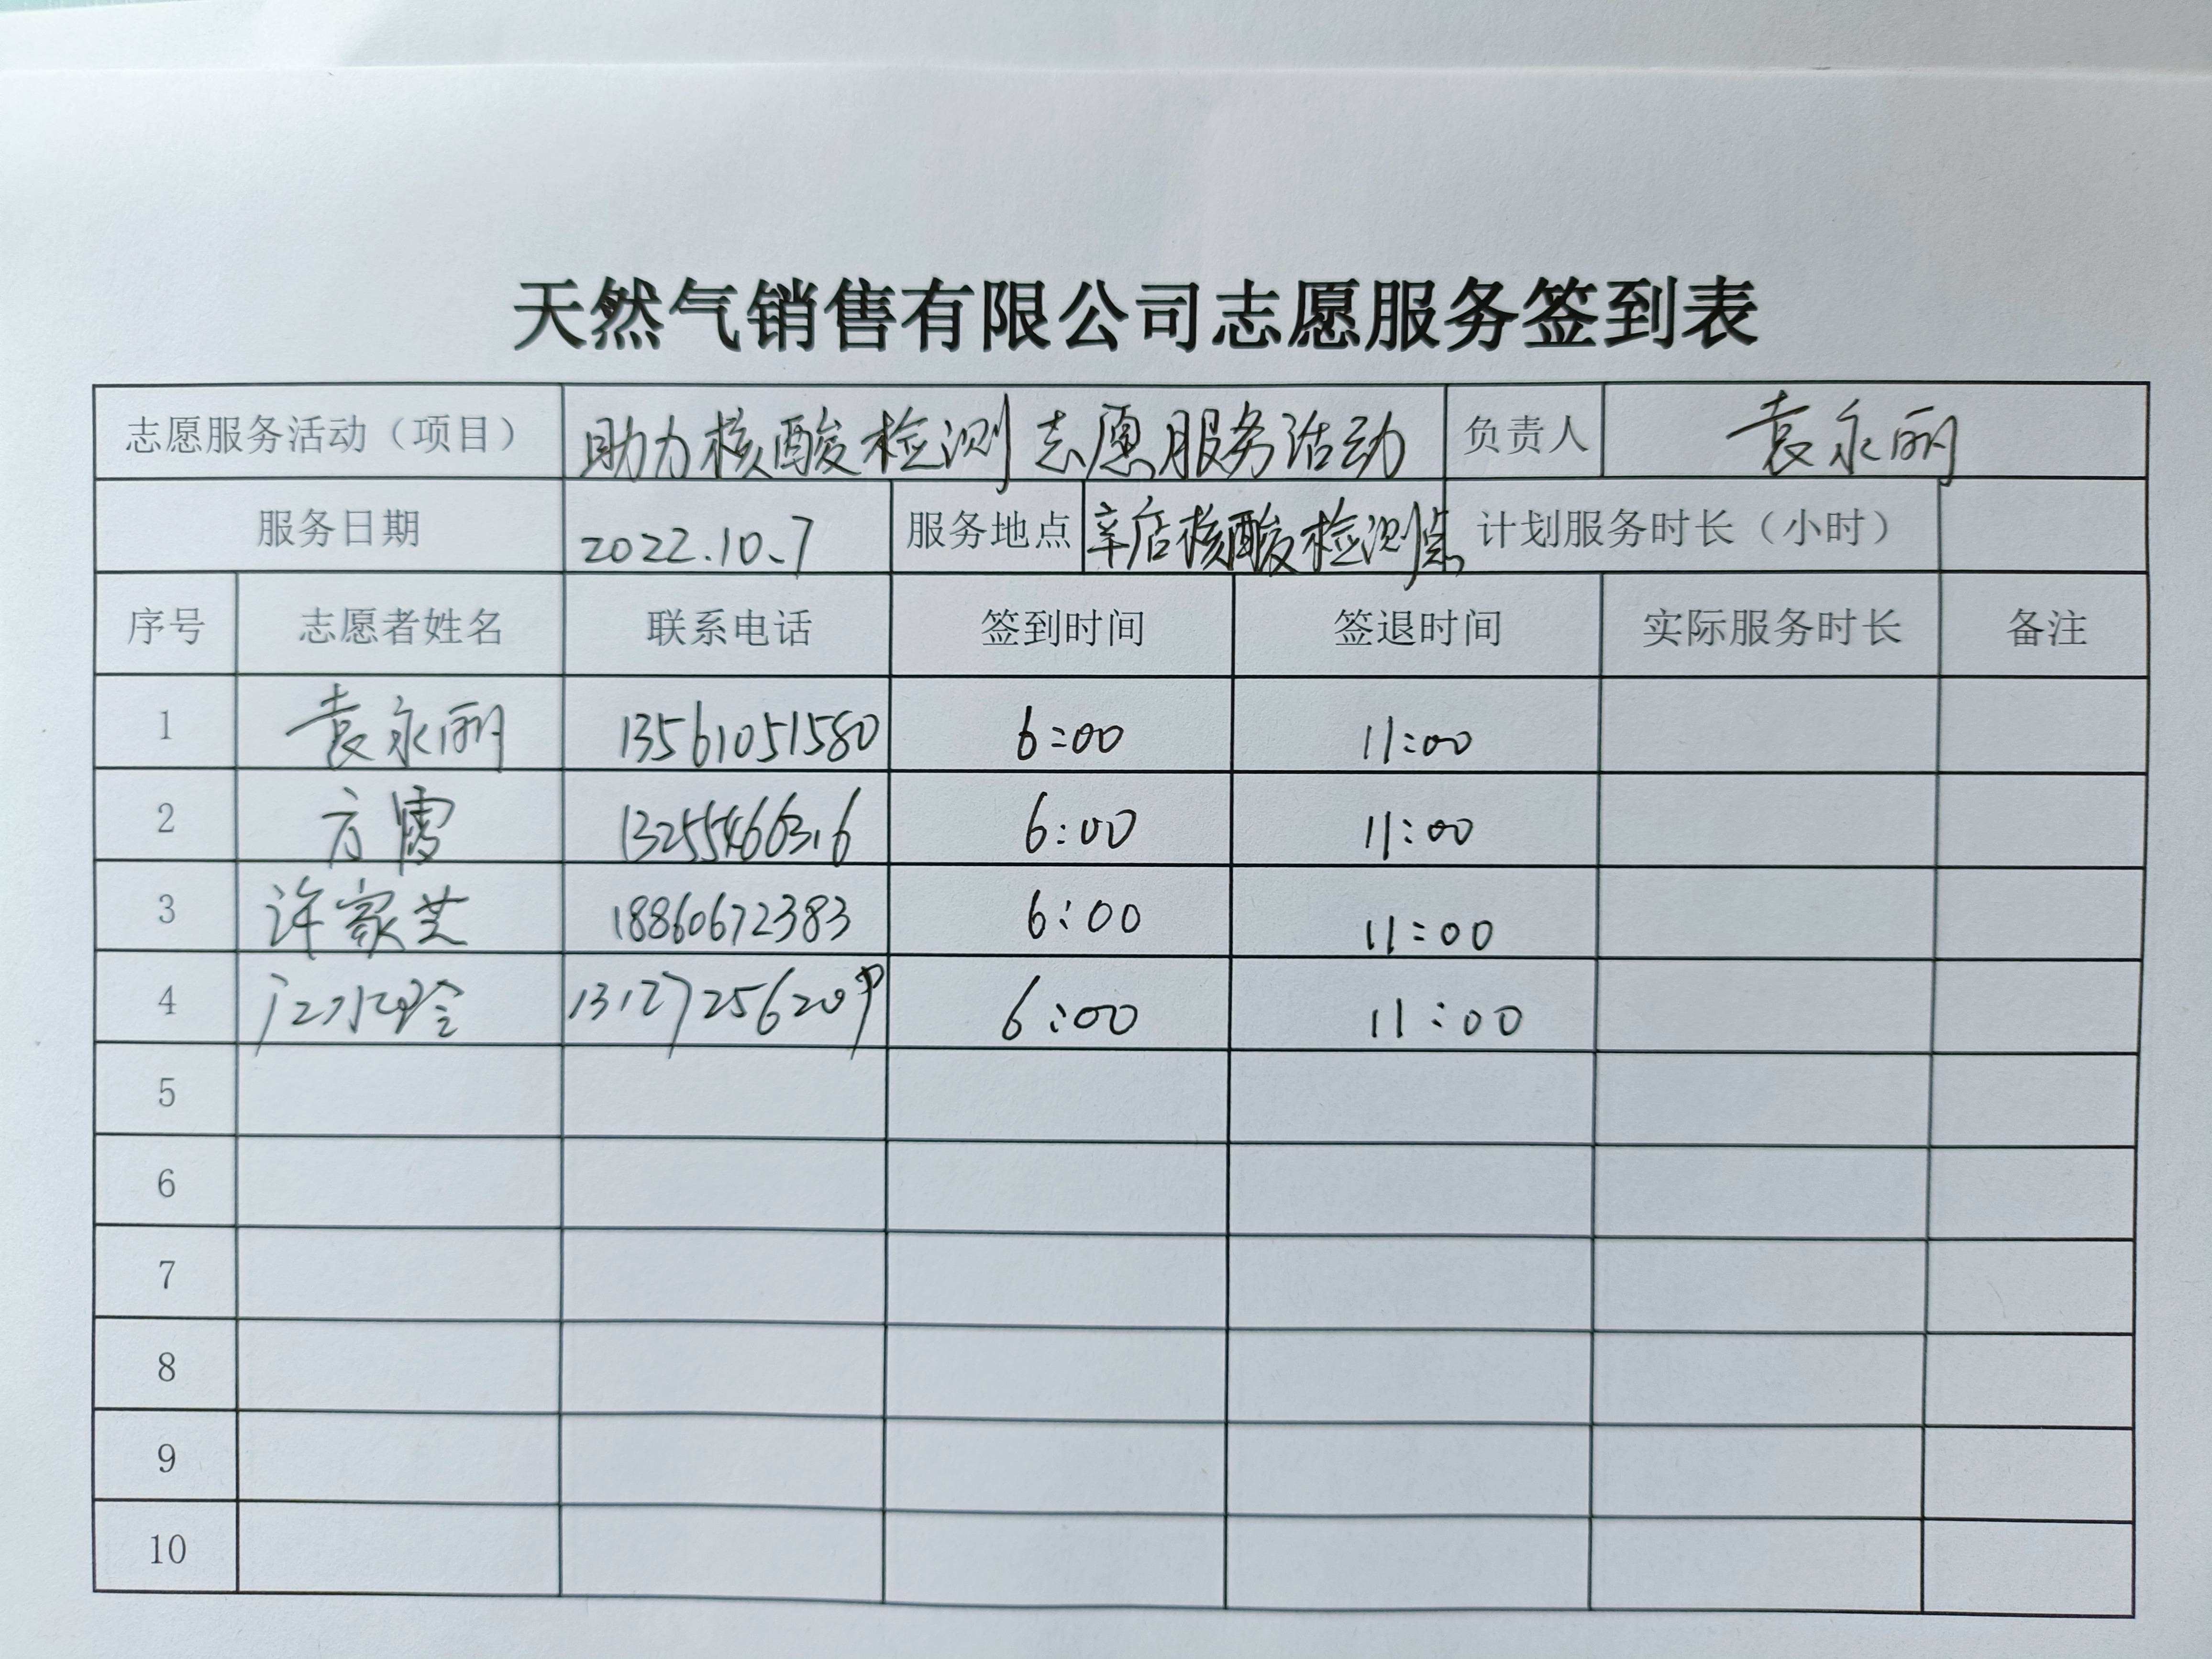 天然气销售有限公司志愿服务签到表
志愿服务活动（项目） 助力核酸检测志愿服务活动 负责人 袁永丽
服务日期 2022.10.7 服务地点 辛店核酸检测点 计划服务时长（小时）
序号 志愿者姓名 联系电话 签到时间 签退时间 实际服务时长 备注
1 袁永丽 13561051580 6:00 11:00
2 方雷 13255466316 6:00 11:00
3 许家芝 18860672383 6:00 11:00
4 6:00 11:00
5
6
7
8
9
10